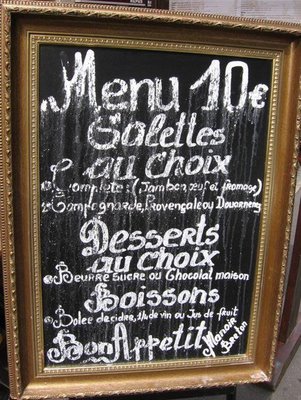 Menu 10€
Galettes
au choix
Complète : (Jambon, œuf et fromage)
Campagnarde, Provençale ou Douarnenez
Desserts
au choix
Beurre sucre ou Chocolat maison
Boissons
Bolée de cidre, 1/4 de vin ou Jus de fruit
Bon Appetit
Manoir
Breton